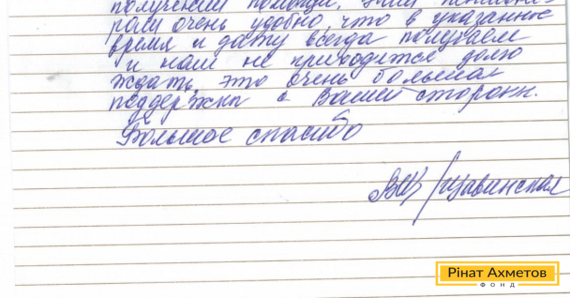 получении помощи. Нам пенсионе-
рам очень удобно, что в указанные
время и дату всегда получаем
и нам не приходится долго
ждать, это очень большая
поддержка с Вашей стороны.
Большое спасибо
Рінат Ахметов
ФОНД